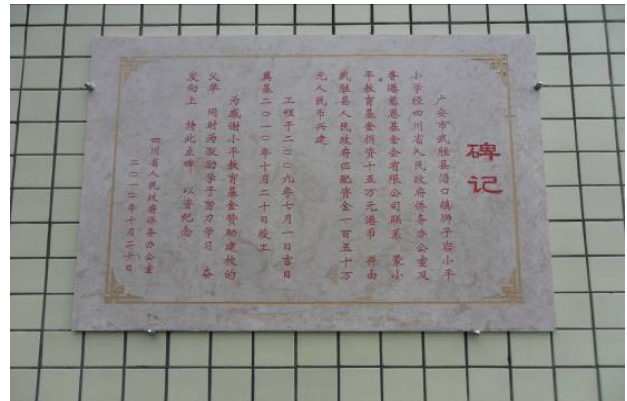 碑记
广安市武胜县沿口镇狮子岩小平
小学经四川省人民政府侨务办公室及
香港慈恩基金会有限公司联系 蒙小
平教育基金捐资十五万元港币 并由
武胜县人民政府匹配资金一百五十万
元人民币兴建
工程于二〇〇九年七月一日吉日
奠基二〇一〇年十月二十日竣工
为感谢小平教育基金赞助建校的
义举 同时为激励学子努力学习 奋
发向上 特此立碑 以资纪念
四川省人民政府侨务办公室
二〇一〇年十月二十日